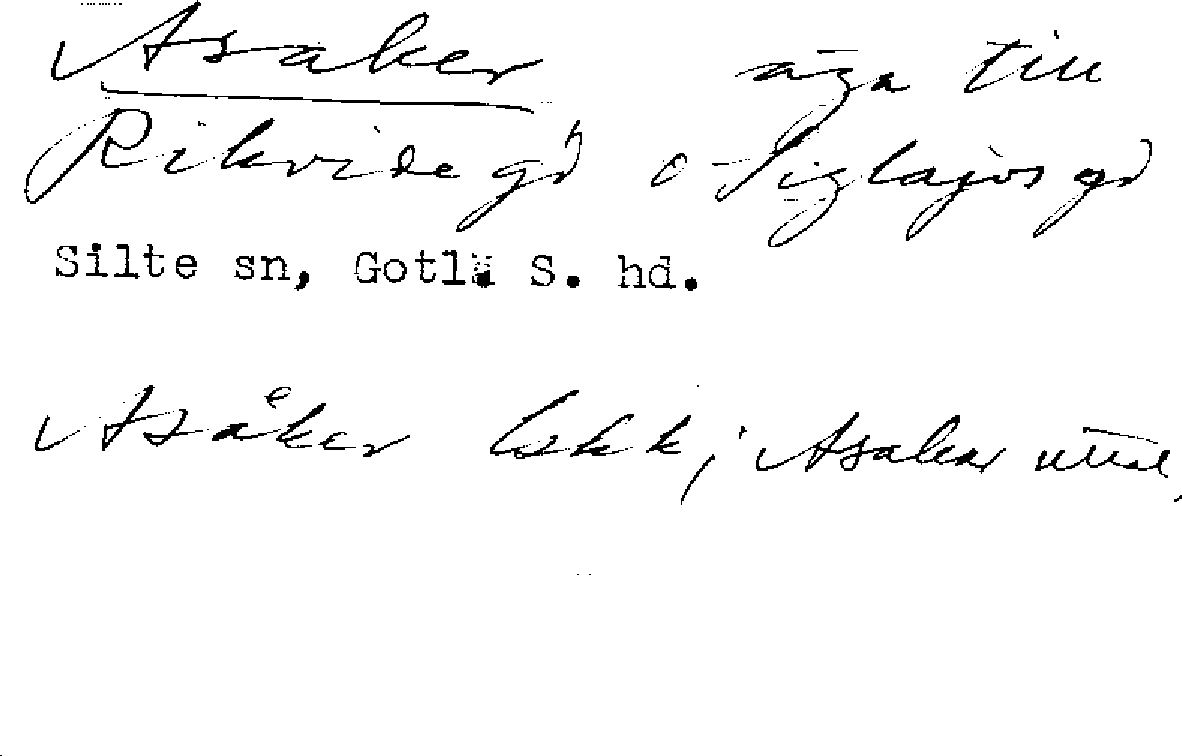 Asaker äga till
Rikvide gd o Siglajvs gd
Silte sn, Gotl. S. hd.
Asåker lskk; Asakar uttal